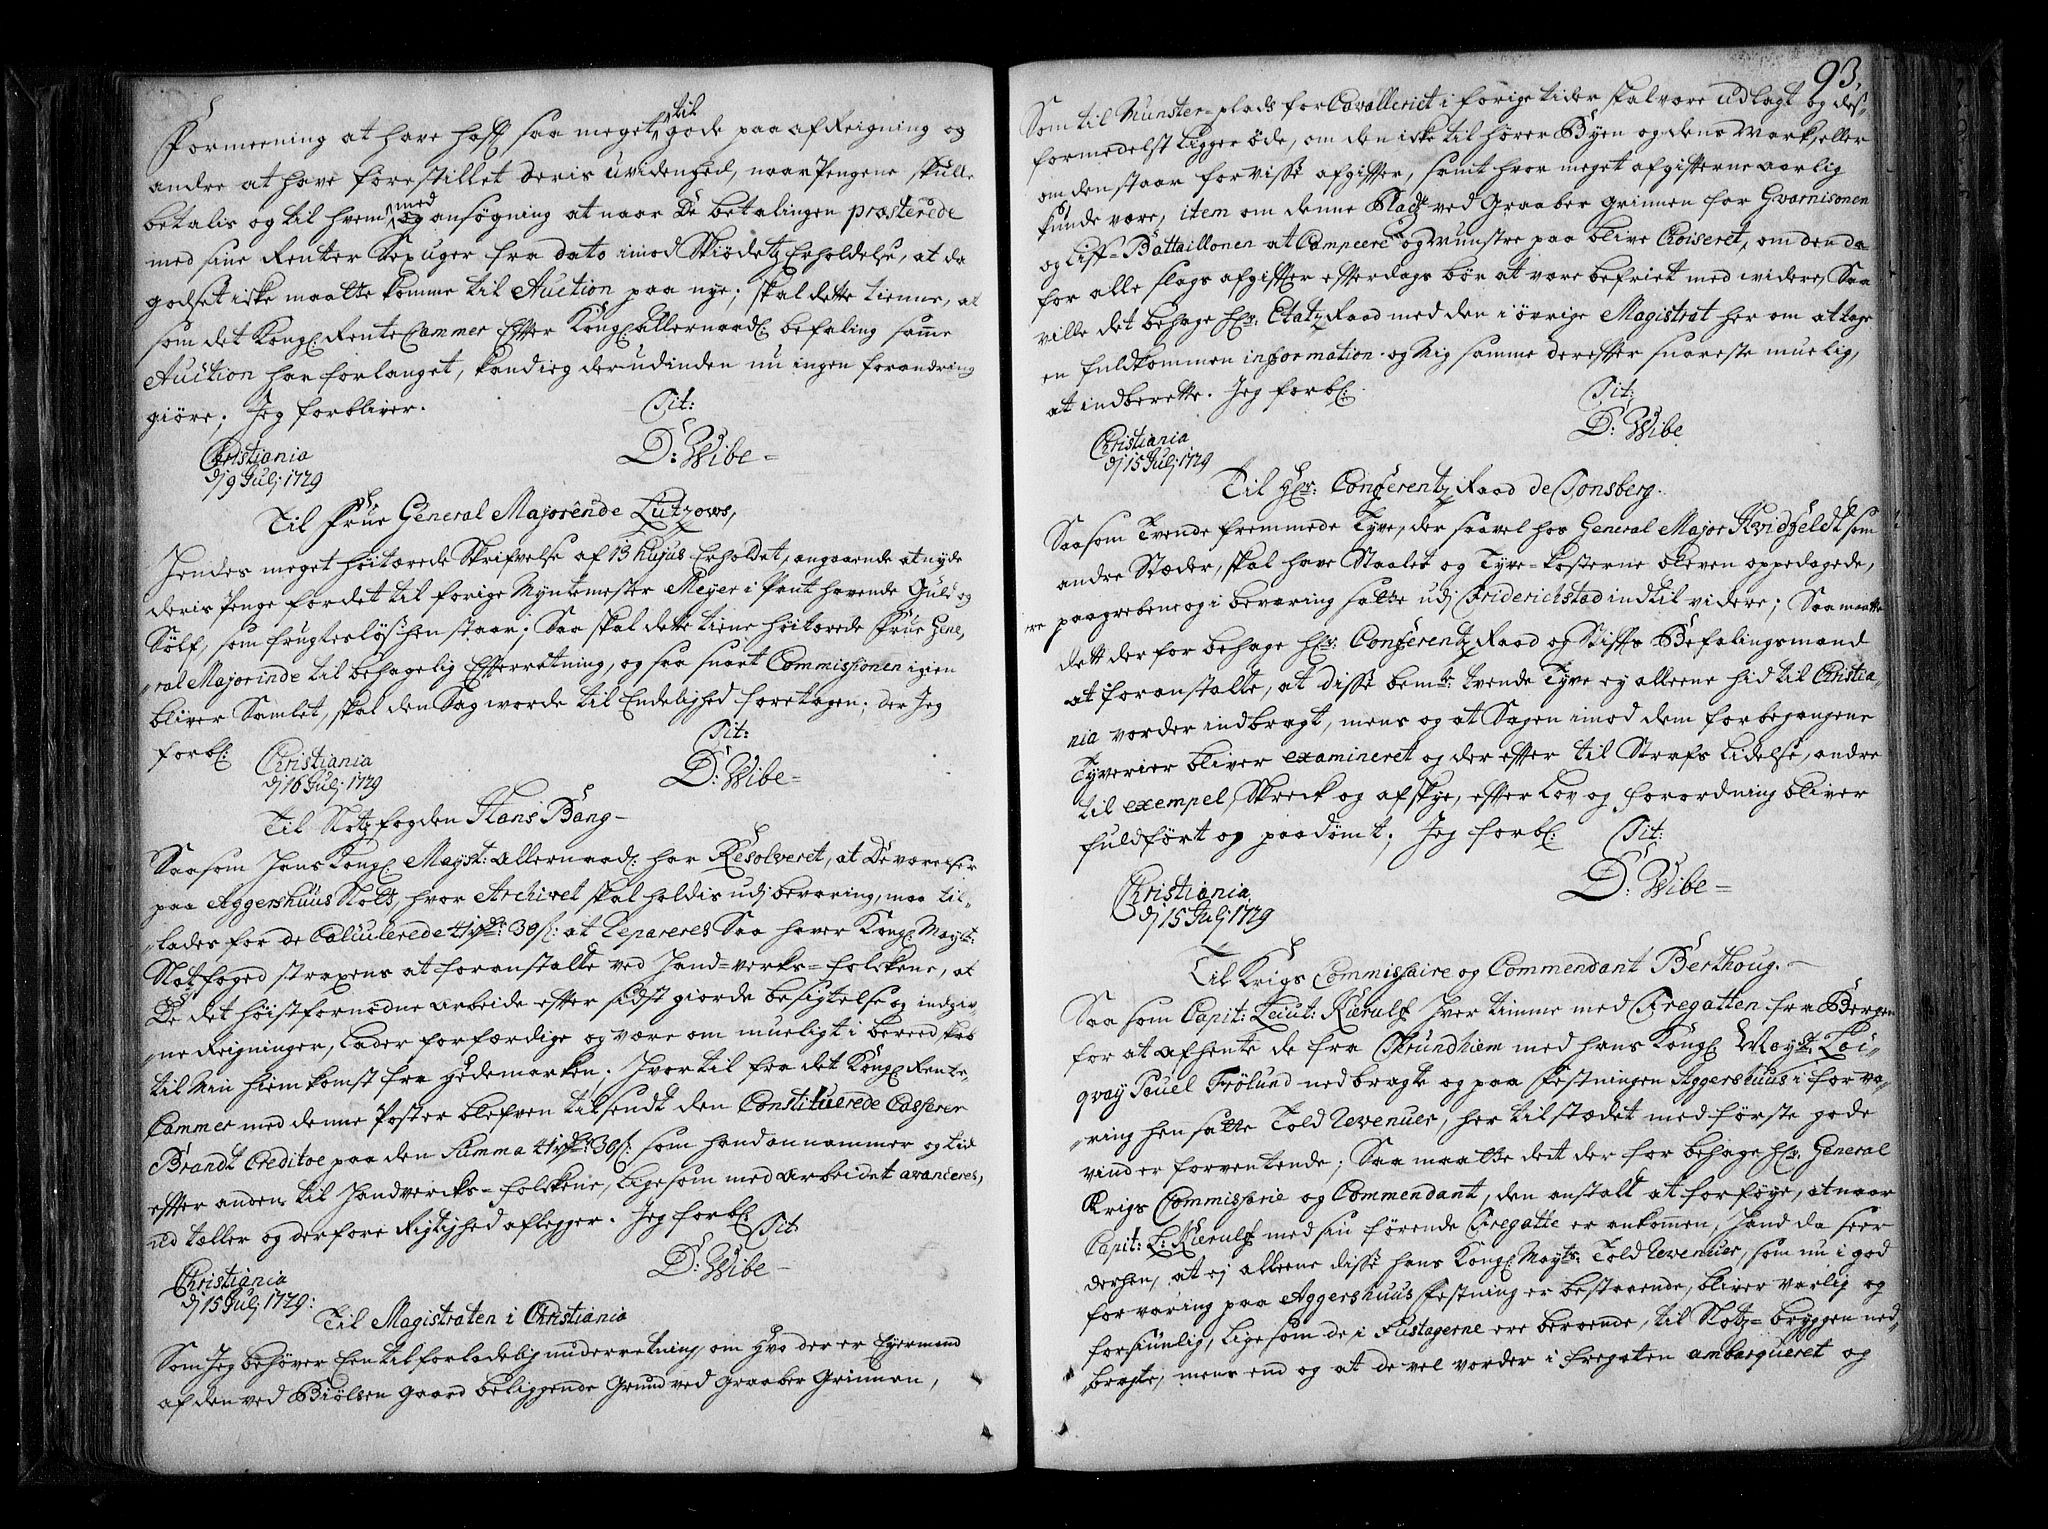 Formeening at have hoß saa meget til gode paa afReigning og
andre at have forestillet deris uvidenhed, naar Pengene skulle
betalis og til hvem, med ansøgning at naar De betalingen præsterede
med sine Renter Sex uger fra dato imod Skiødetz Erholdelse, at da
godset iske maatte komme til Auction paa nye; skal dette tienne, at
som det Kongl. RenteCammer Efter Kongl. allernaadl. befaling samme
Auction har forlanget, kand ieg derudinden nu ingen forandring
giøre; Jeg forbliver. Tit:
Christiania D: Wibe
dj 9 Julj 1729
Til Frue General Majorinde Lützows,
Hendes meget høitærede Skrifvelse af 13 hujus Erholdet, angaaende at nyde
deris Penge for det til forige Myntemester Meyer i Pant havende Guld og
Sølf, som frugtesløs hen staar; Saa skal dette tiene høitærede Frue Gene-
ral Majorinde til behagelig Efterretning, og saa snart Commissionen igien
bliver Samlet, skal den Sag worde til Endelighed foretagen; der Jeg
forbl: Christiania Tit:
dj 16 Julj 1729 D: Wibe
Til Slotz fogden Hans Bang
Saasom Hans Kongl. Mayst: allernaadl. har Resolveret, at De værelser
paa Aggershuus Slott, hvor Archivet skal holdis udj bevaring, maa til-
lades for de Calculerede 41 rdr: 30 s: at repareres Saa haver Kongl. Mayts:
Slotfoged straxens at foranstalte ved Hand-verks-folckene, at
De det høist fornødne arbeide efter sidst giorde besigtelse og indgiv-
ne Reigninger, lader forfærdige og være om mueligt i bereedskab
til min hiemkomst fra Hedemarken. Hvortil fra det Kongl. Rente
Cammer med denne Poster blefven tilsendt den Constituerede Casserer
Brandt Creditve paa den Summa 41 rdr: 30 s: som hand annammer og tid
efter anden til Handvercks-folckene, ligesom med arbeidet avanceres,
ud tæller og derfore Rigtighed aflegger. Jeg forbl: Tit
D: Wibe
Christiania
dj 15 Julj 1729:
Til Magistraten i Christiania
Som Jeg behøver Een tilforladelig underretning, om Hvo der er Eyermand
af den ved Biølsen gaard beliggende Grund ved Graaber Grinnen,
93.
Som til Munster-plads for Cavalleriet i forige tider skal være udlagt og des-
formedelst ligger øde, om den iske til hører Byen og dens Mark, eller
om den staar for visse afgifter, samt hvor meget afgifterne aarlig
kunde være, item om denne Plads ved Graaber grinnen for Gvarnisonen
og Liff-Battaillonen at Campeere og Munstre paa blive Choiseret, om den da
for alle slags afgifter efterdags bør at være befriet med widere, Saa
ville det behage Hr. EtatzRaad med den i øvrige Magistrat her om at tage
en fuldkommen information og Mig samme derefter snareste muelig,
at indberette. Jeg forbl. Tit:
Christiania D: Wibe
dj 15 Julj 1729
Til Hr. Conferentz Raad de Tonsberg.
Saasom Tvende fremmede Tyve, der saavel hos General Major Hvidfeldt som
andre Stæder, skal have Staalet og Tyve-kosterne bleven oppedagede,
ere paagrebene og i bevaring satte udj Friderichstad indtil videre; Saa maatte
dett der for behage Hr. Conferentz Raad og Stifts Befalingsmand
at foranstalte, at disse bemte: tvende Tyve ey alleene hid til Christia-
nia vorder indbragt, mens og at Sagen imod dem forbegangene
Tyverier bliver examineret og der efter til Strafs Lidelse, andre
til exempel, Skreck og afskye, efter Lov og forordning bliver
fuldført og paadømt; Jeg forbl: Tit:
Christiania D: Wibe
dj 15 Julj 1729
Til Krigs Commissaire og Commendant Berthoug.
Saa som Capit: Leiut: Kierulf hver timme med Fregatten fra Bergen
for at afhente de fra Thrundhiem med hans Kongl. Mayst. Loi-
qvay Pouel Frølund nedbragte og paa Festningen Aggershuus i forva-
ring hen satte Told Revenuer, her til stædet med første gode
vind er forventende; Saa maatte dett der for behage Hr. General
Krigs Commissarie og Commendant, den anstalt at forføye, at naar
Capit: L: Kierulf med sin førende Fregatte er ankommen, Hand da seer
derhen, at ej alleene disse hans Kongl. Mayts: Told Revenuer, som nu i god
forvaring paa Aggershuus Festning er bestaaende, bliver varlig og
forsiunlig, ligesom de i Fustagerne ere beroende, til Slotz-bryggen ned-
bragte, mens end og at de vel vorder i fregaten ambarqueret og